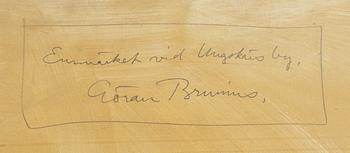 Enmarket vid Ungskris by,
Göran Brunius,